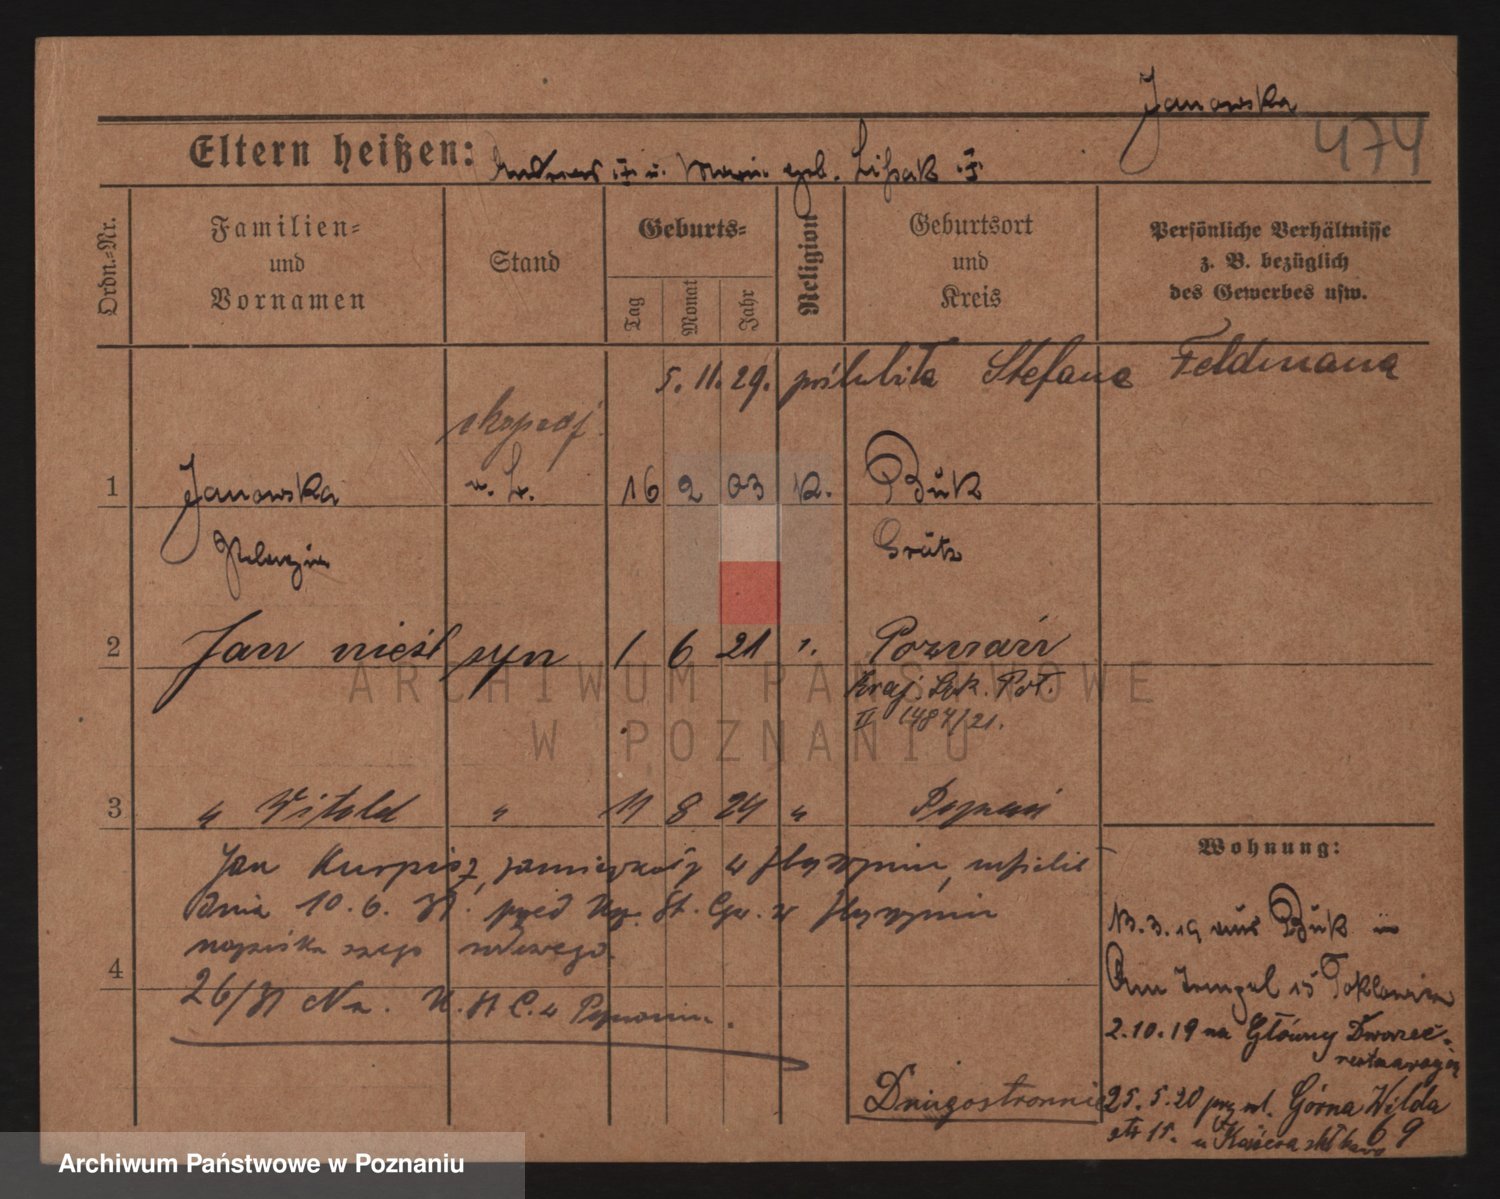 Janowska
474
Eltern heißen: Andreas † u. Marie geb. Lissak †
Ordn.-Nr.
Familien-
und
Vornamen
Stand
Geburts-
Tag
Monat
Jahr
Religion
Geburtsort
und
Kreis
Persönliche Verhältnisse
z. B. bezüglich
des Gewerbes usw.
5. 11. 29. poślubiła Stefana Feldmana
1 Janowska 16 2 03 K. Buk
Pelagia Grätz
2 Jan nieśl syn 1 6 21 ". Poznań
Kraj. Lek. Poł.
II 1484/21.
3 " Witold " 11 8 24 " Poznań
Jan Kurpisz, zamieszkały w
dnia 10. 6. 31. przed Urz. St. Cyw. w
nazwisko swego
4
26/31 Nr. U. St. C. w Poznaniu.
Wohnung:
13. 3. 19 aus Buk in
Am Tempel 15
2. 10. 19 na Główny Dworzec-
restauracja
Drugostronnie 25. 5. 20 przy ul. Górna Wilda
69
str 15.
ARCHIWUM PAŃSTWOWE
W POZNANIU
Archiwum Państwowe w Poznaniu